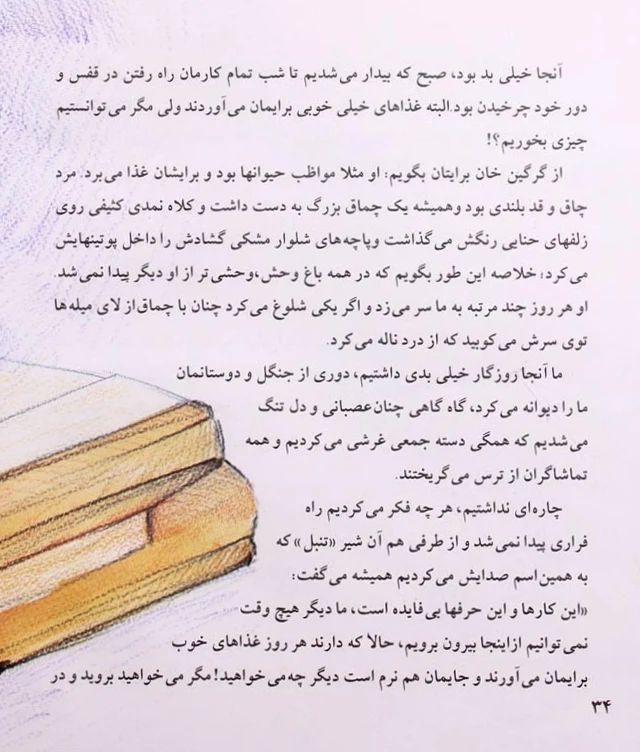 آنجا خیلی بد بود، صبح که بیدار می‌شدیم تا شب تمام کارمان راه رفتن در قفس و
دور خود چرخیدن بود. البته غذاهای خیلی خوبی برایمان می‌آوردند ولی مگر می‌توانستیم
چیزی بخوریم؟!
از گرگین خان برایتان بگویم: او مثلا مواظب حیوانها بود و برایشان غذا می‌برد. مرد
چاق و قد بلندی بود وهمیشه یک چماق بزرگ به دست داشت و کلاه نمدی کثیفی روی
زلفهای حنایی رنگش می‌گذاشت وپاچه‌های شلوار مشکی گشادش را داخل پوتینهایش
می‌کرد؛ خلاصه این طور بگویم که در همه باغ وحش،وحشی‌تر از او دیگر پیدا نمی‌شد.
او هر روز چند مرتبه به ما سر می‌زد و اگر یکی شلوغ می‌کرد چنان با چماق‌از لای میله‌ها
توی سرش می‌کوبید که از درد ناله می‌کرد.
ما آنجا روزگار خیلی بدی داشتیم، دوری از جنگل و دوستانمان
ما را دیوانه می‌کرد، گاه گاهی چنان‌عصبانی و دل تنگ
می‌شدیم که همگی دسته جمعی غرشی می‌کردیم و همه
تماشاگران از ترس می‌گریختند.
چاره‌ای نداشتیم، هر چه فکر می‌کردیم راه
فراری پیدا نمی‌شد و از طرفی هم آن شیر «تنبل» که
به همین‌اسم صدایش می‌کردیم همیشه می‌گفت:
«این کارها و این حرفها بی‌فایده است، ما دیگر هیچ وقت
نمی‌توانیم ازاینجا بیرون برویم، حالا که دارند هر روز غذاهای خوب
برایمان می‌آورند و جایمان هم نرم است دیگر چه‌می‌خواهید! مگر می‌خواهید بروید و در
۳۴